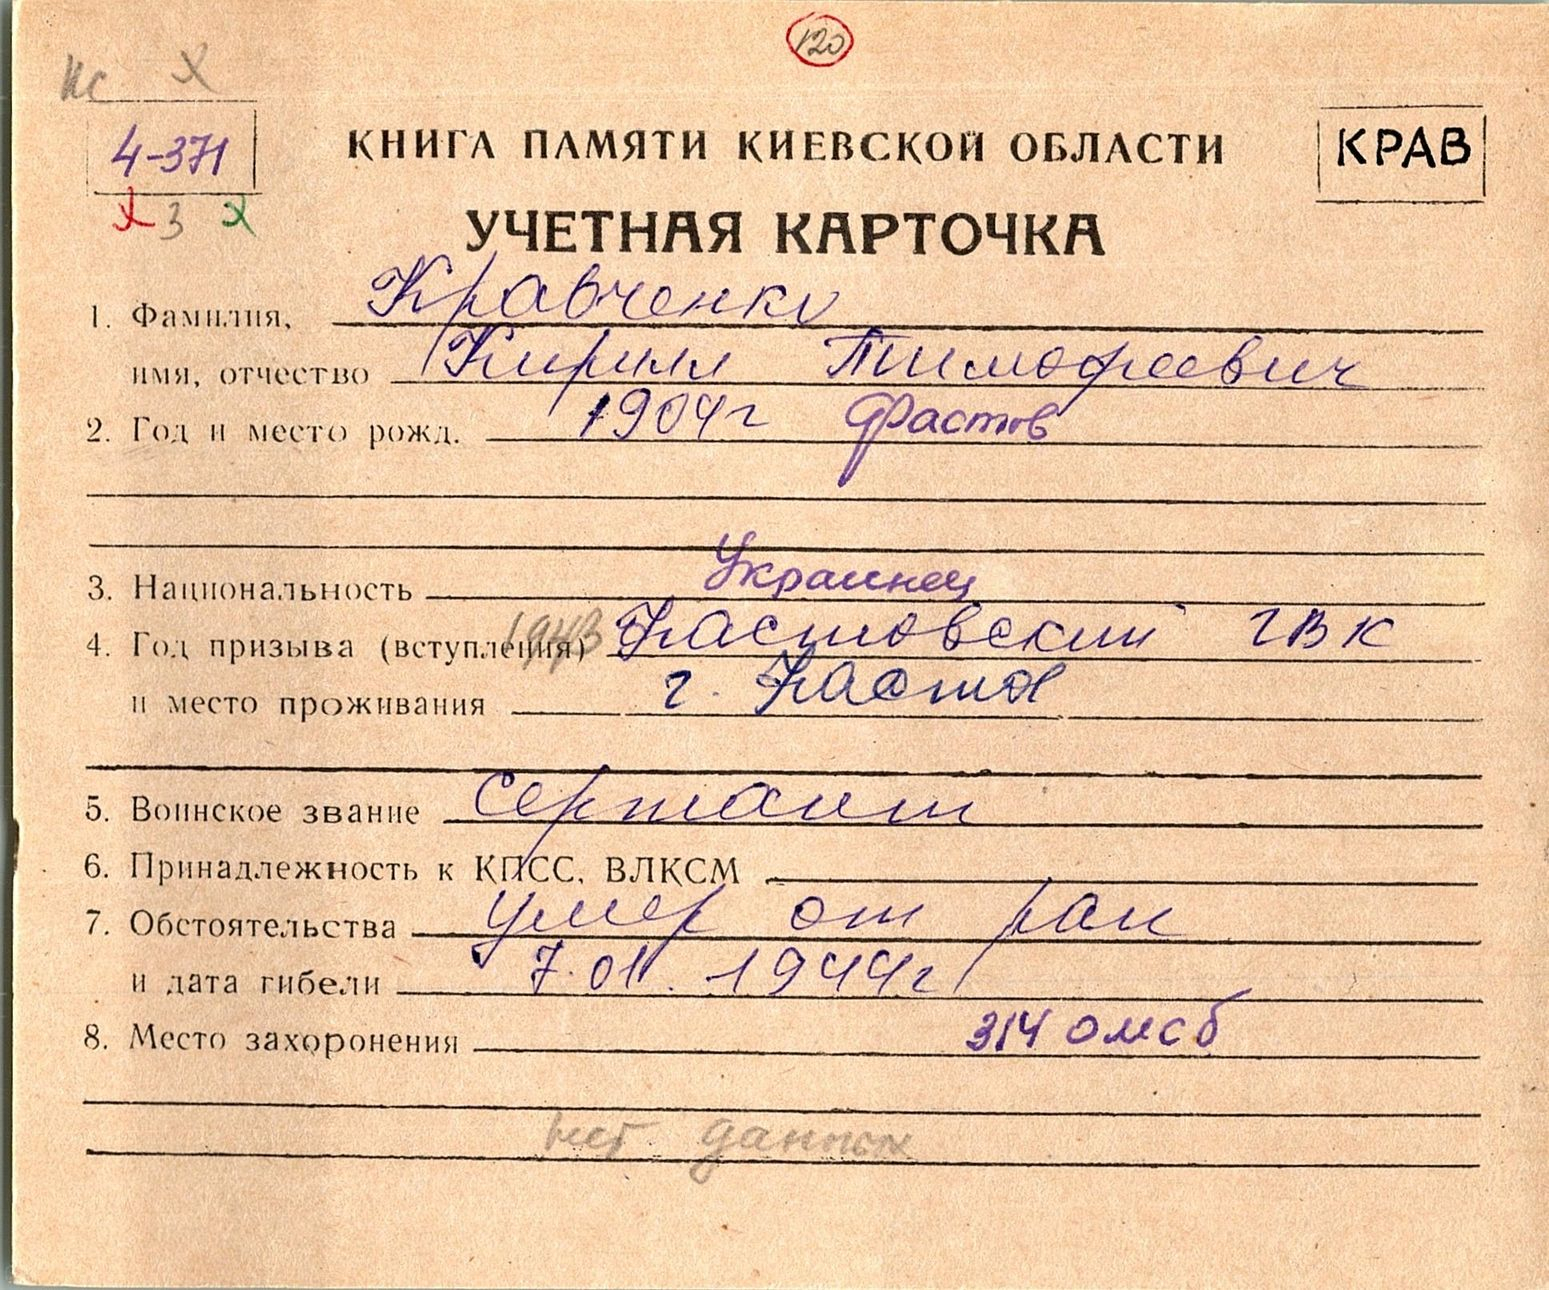 120
пс х
4-371
КНИГА ПАМЯТИ КИЕВСКОЙ ОБЛАСТИ
КРАВ
х 3 х
УЧЕТНАЯ КАРТОЧКА
1. Фамилия, Кравченко
имя, отчество Кирилл Тимофеевич
2. Год и место рожд. 1904г Фастов
3. Национальность Украинец
4. Год призыва (вступления) 1943 Фастовский ГВК
и место проживания г. Фастов
5. Воинское звание сержант
6. Принадлежность к КПСС, ВЛКСМ
7. Обстоятельства умер от ран
и дата гибели 7.01.1944г
8. Место захоронения 314 омсб
нет данных